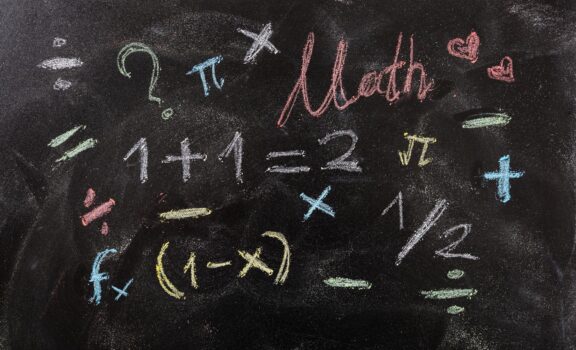 ÷ ? π × Math
= 1 + 1 = 2 π − +
÷ − × 1/2
fx (1 - x) − ÷